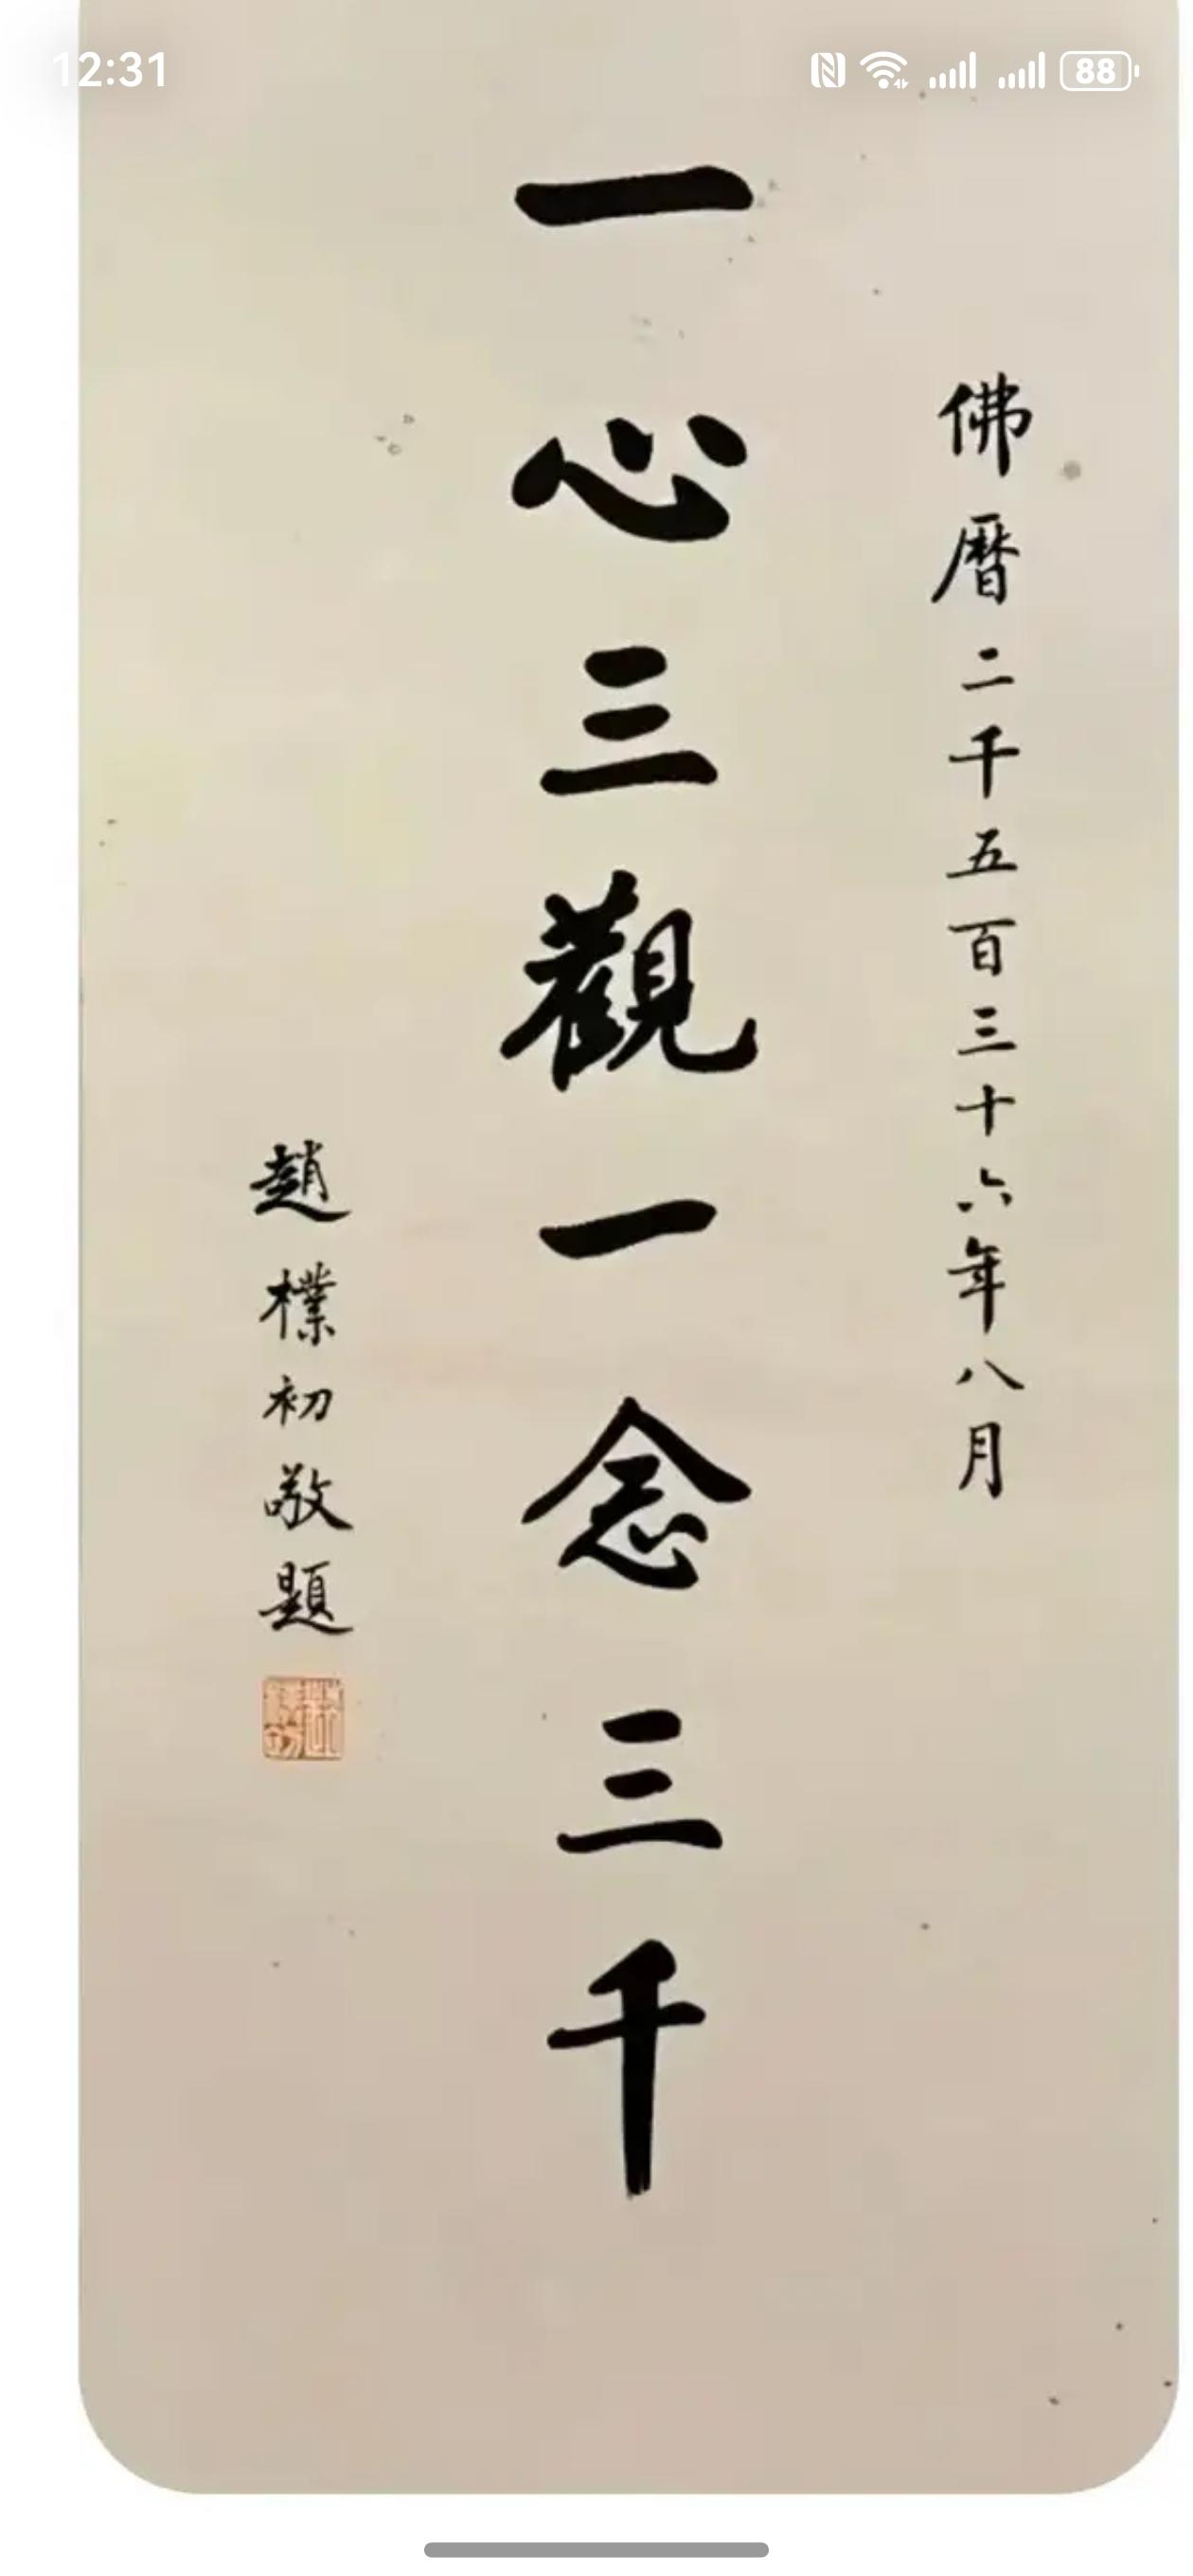 12:31
88
佛曆二千五百三十六年八月
一心三觀一念三千
趙樸初敬題